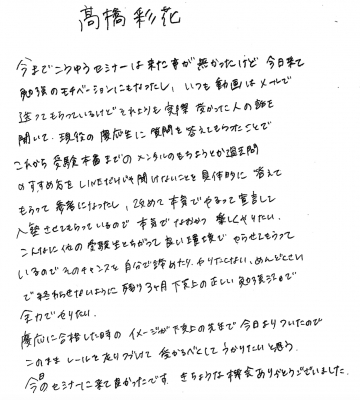 高橋彩花
今までこうゆうセミナーは来た事が無かったけど今日来て
勉強のモチベーションにもなったし、いつも動画はメールで
送ってもらっているけどそれよりも実際受かった人の話を
聞いて、現役の慶応生に質問を答えてもらったことで
これから受験本番までのメンタルのもちようとか過去問
のすすめ方をLINEだけじゃ聞けないことを具体的に答えて
もらって参考になったし、改めて本気でやるって宣言して
入塾させてもらっているので本気でなおかつ楽しくやりたい。
こんなに他の受験生とちがって良い環境でやらせてもらって
いるのでそのチャンスを自分で諦めたり、やりたくない、めんどくさい
で終わらせないように残り3ヶ月下克上の正しい勉強法で
全力でやりたい。
慶応に合格した時のイメージが下克上の先生で今日よりついたので
このままレールを走りつづけて受かるべくしてうかりたいと思う。
今日のセミナーに来て良かったです。きちょうな機会ありがとうございました。